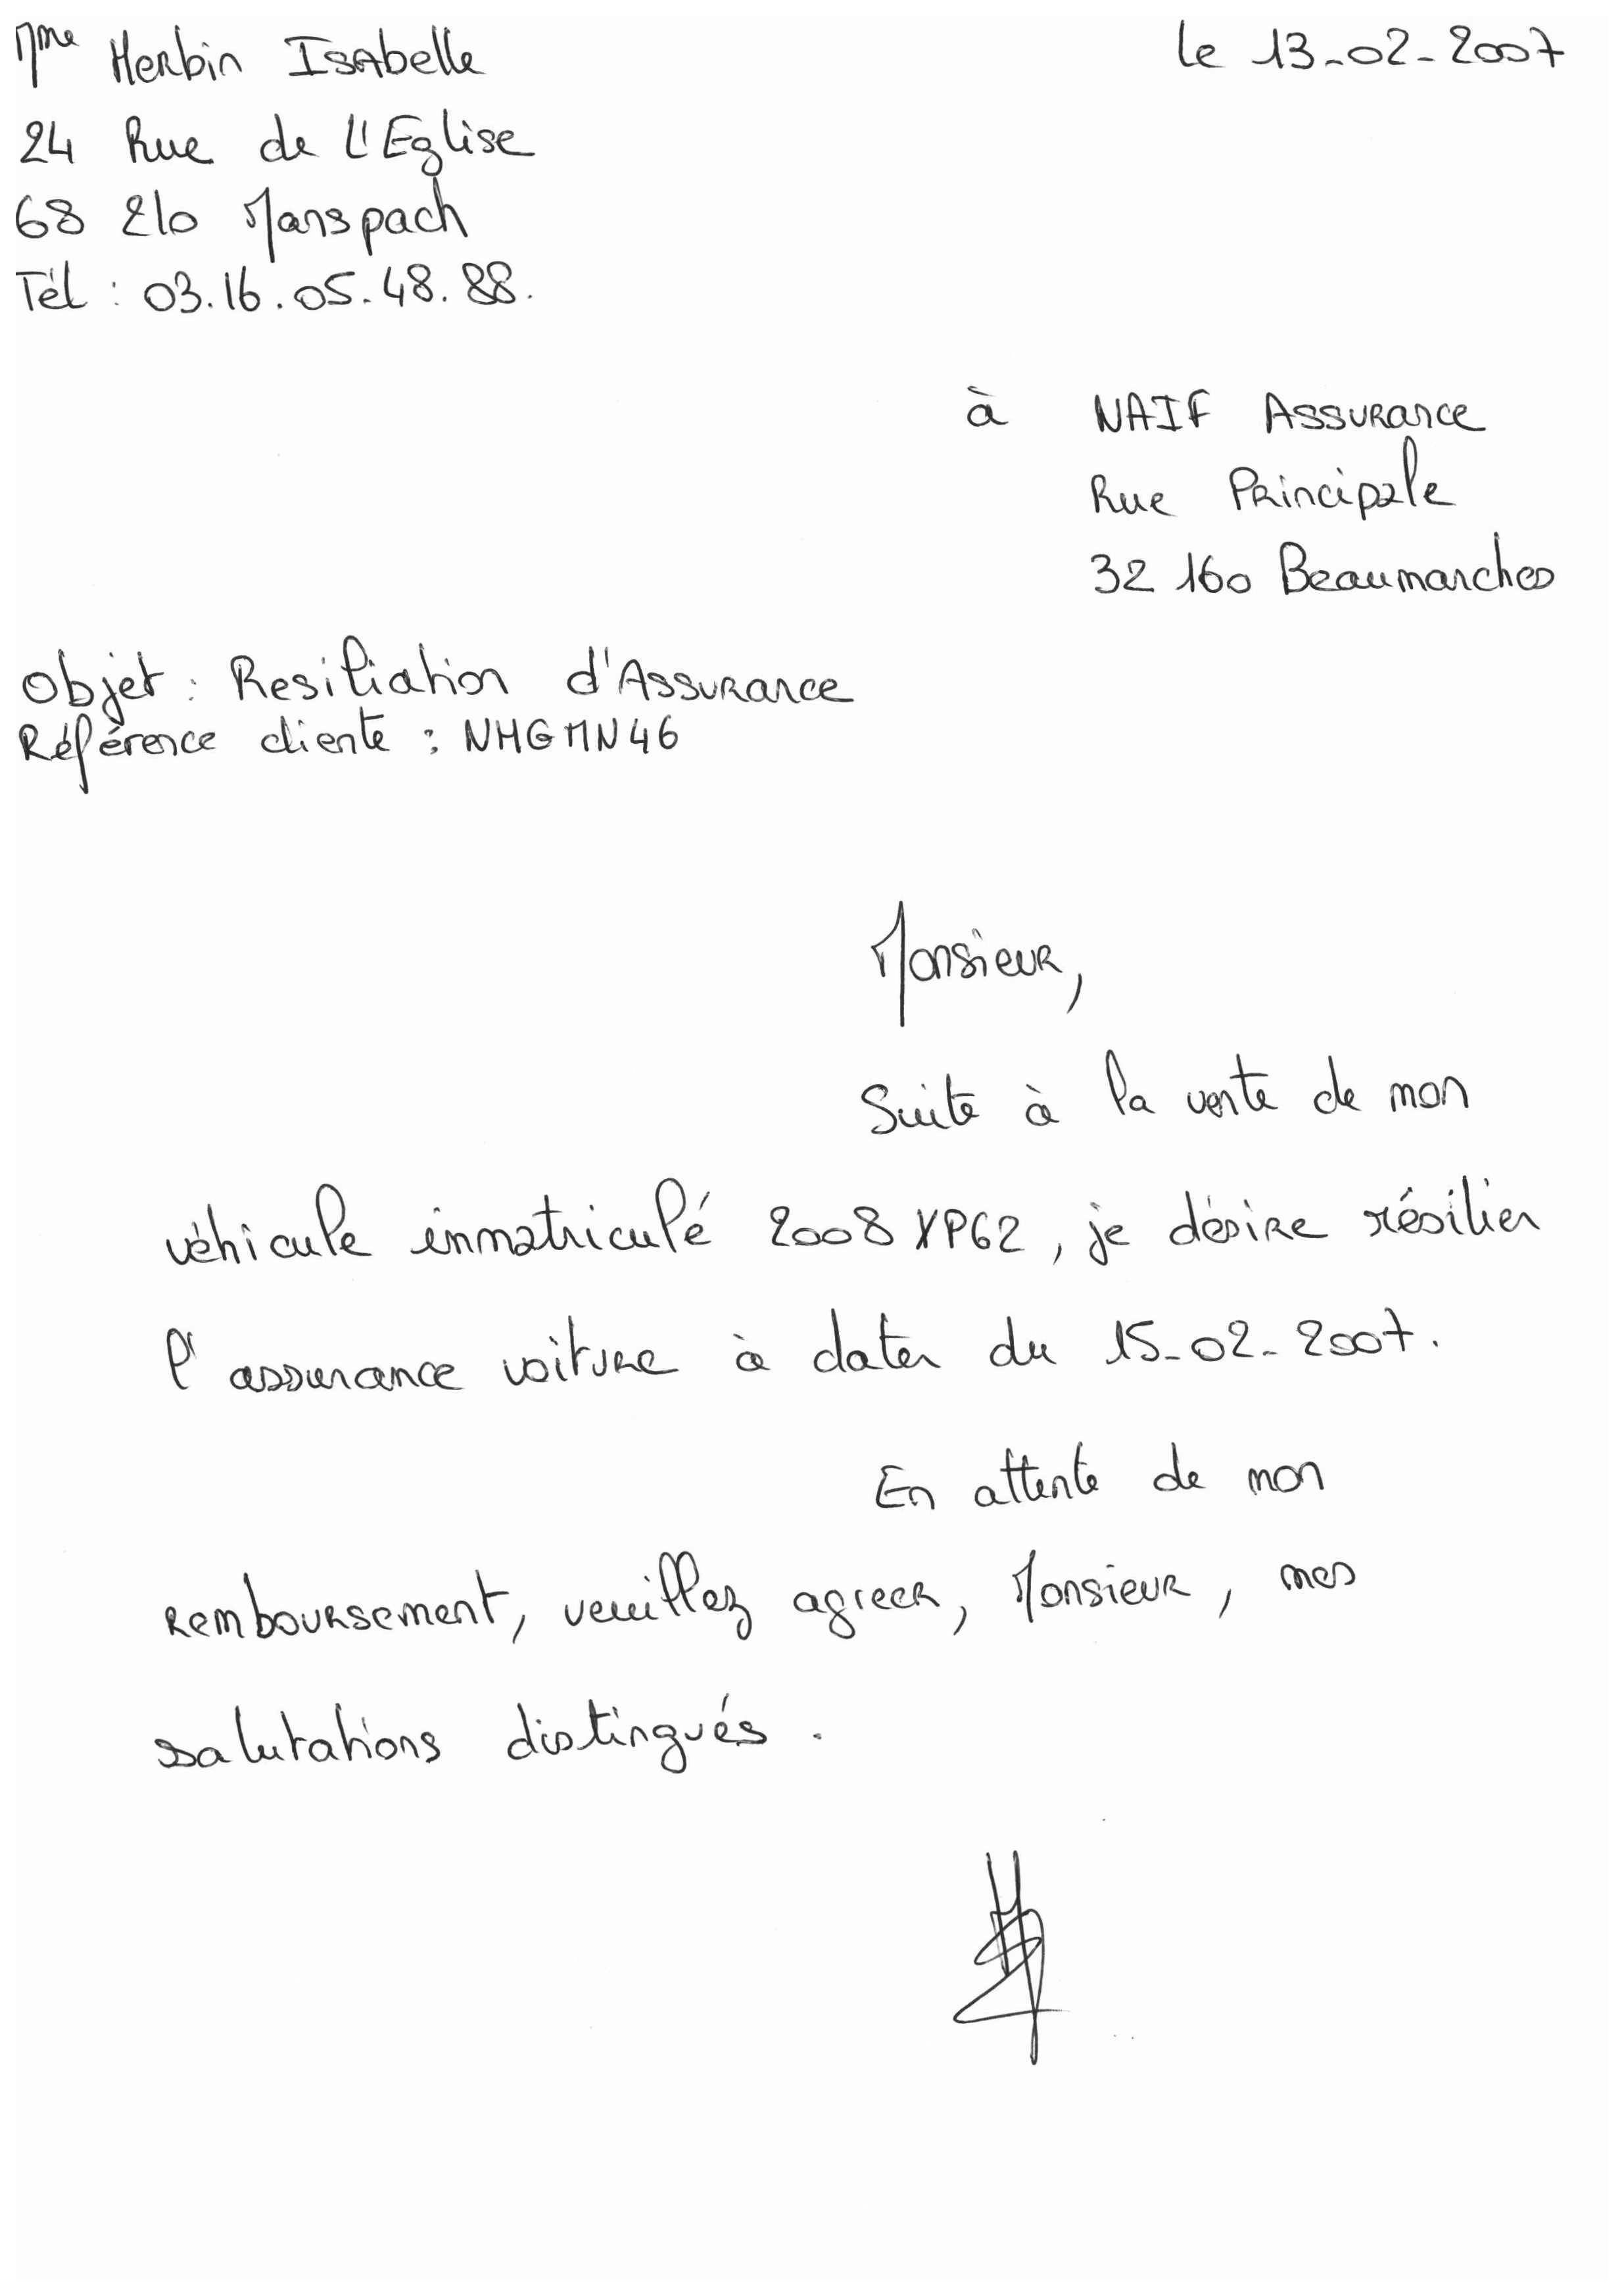 Mme Herbin Isabelle
le 13-02-2007
24 Rue de L'Eglise
68 210 Manspach
Tél : 03.16.05.48.88.
à NAIF Assurance
Rue Principale
32 160 Beaumarches
Objet : Resiliation d'Assurance
Référence cliente : NHGMN46
Monsieur,
Suite à la vente de mon
véhicule inmatriculé 2008 XP62, je désire résilier
l'assurance voiture à dater du 15-02-2007.
En attente de mon
remboursement, veuillez agreer, Monsieur, mes
salutations distingués.